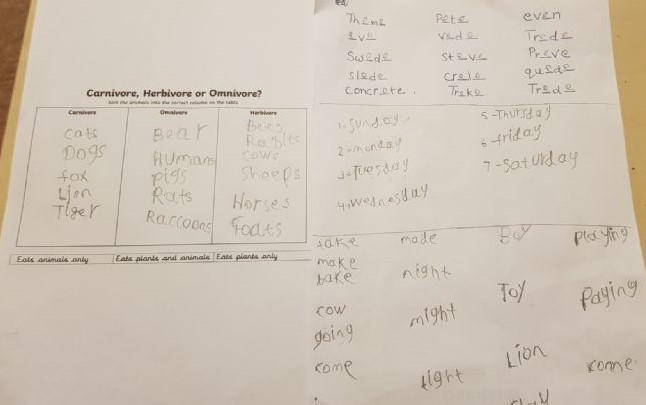 Carnivore, Herbivore or Omnivore?
Sort the animals into the correct column on the table
Carnivore Omnivore Herbivore
Cats Bear Bees
Dogs Humans Rabits
fox pigs cows
Lion Rats Sheeps
Tiger Raccoons Horses
Goats
Eats animals only Eats plants and animals Eats plants only
Theme Pete even
Eve vede Trede
Swede steve Preve
slede crele quede
concrete. Treke Trede
1-Sunday. 5-Thursday
2-monday 6-friday
3-Tuesday 7-saturday
4-wednesday
take made Boy playing
make
bake night
cow might Toy paying
going
come light Lion come